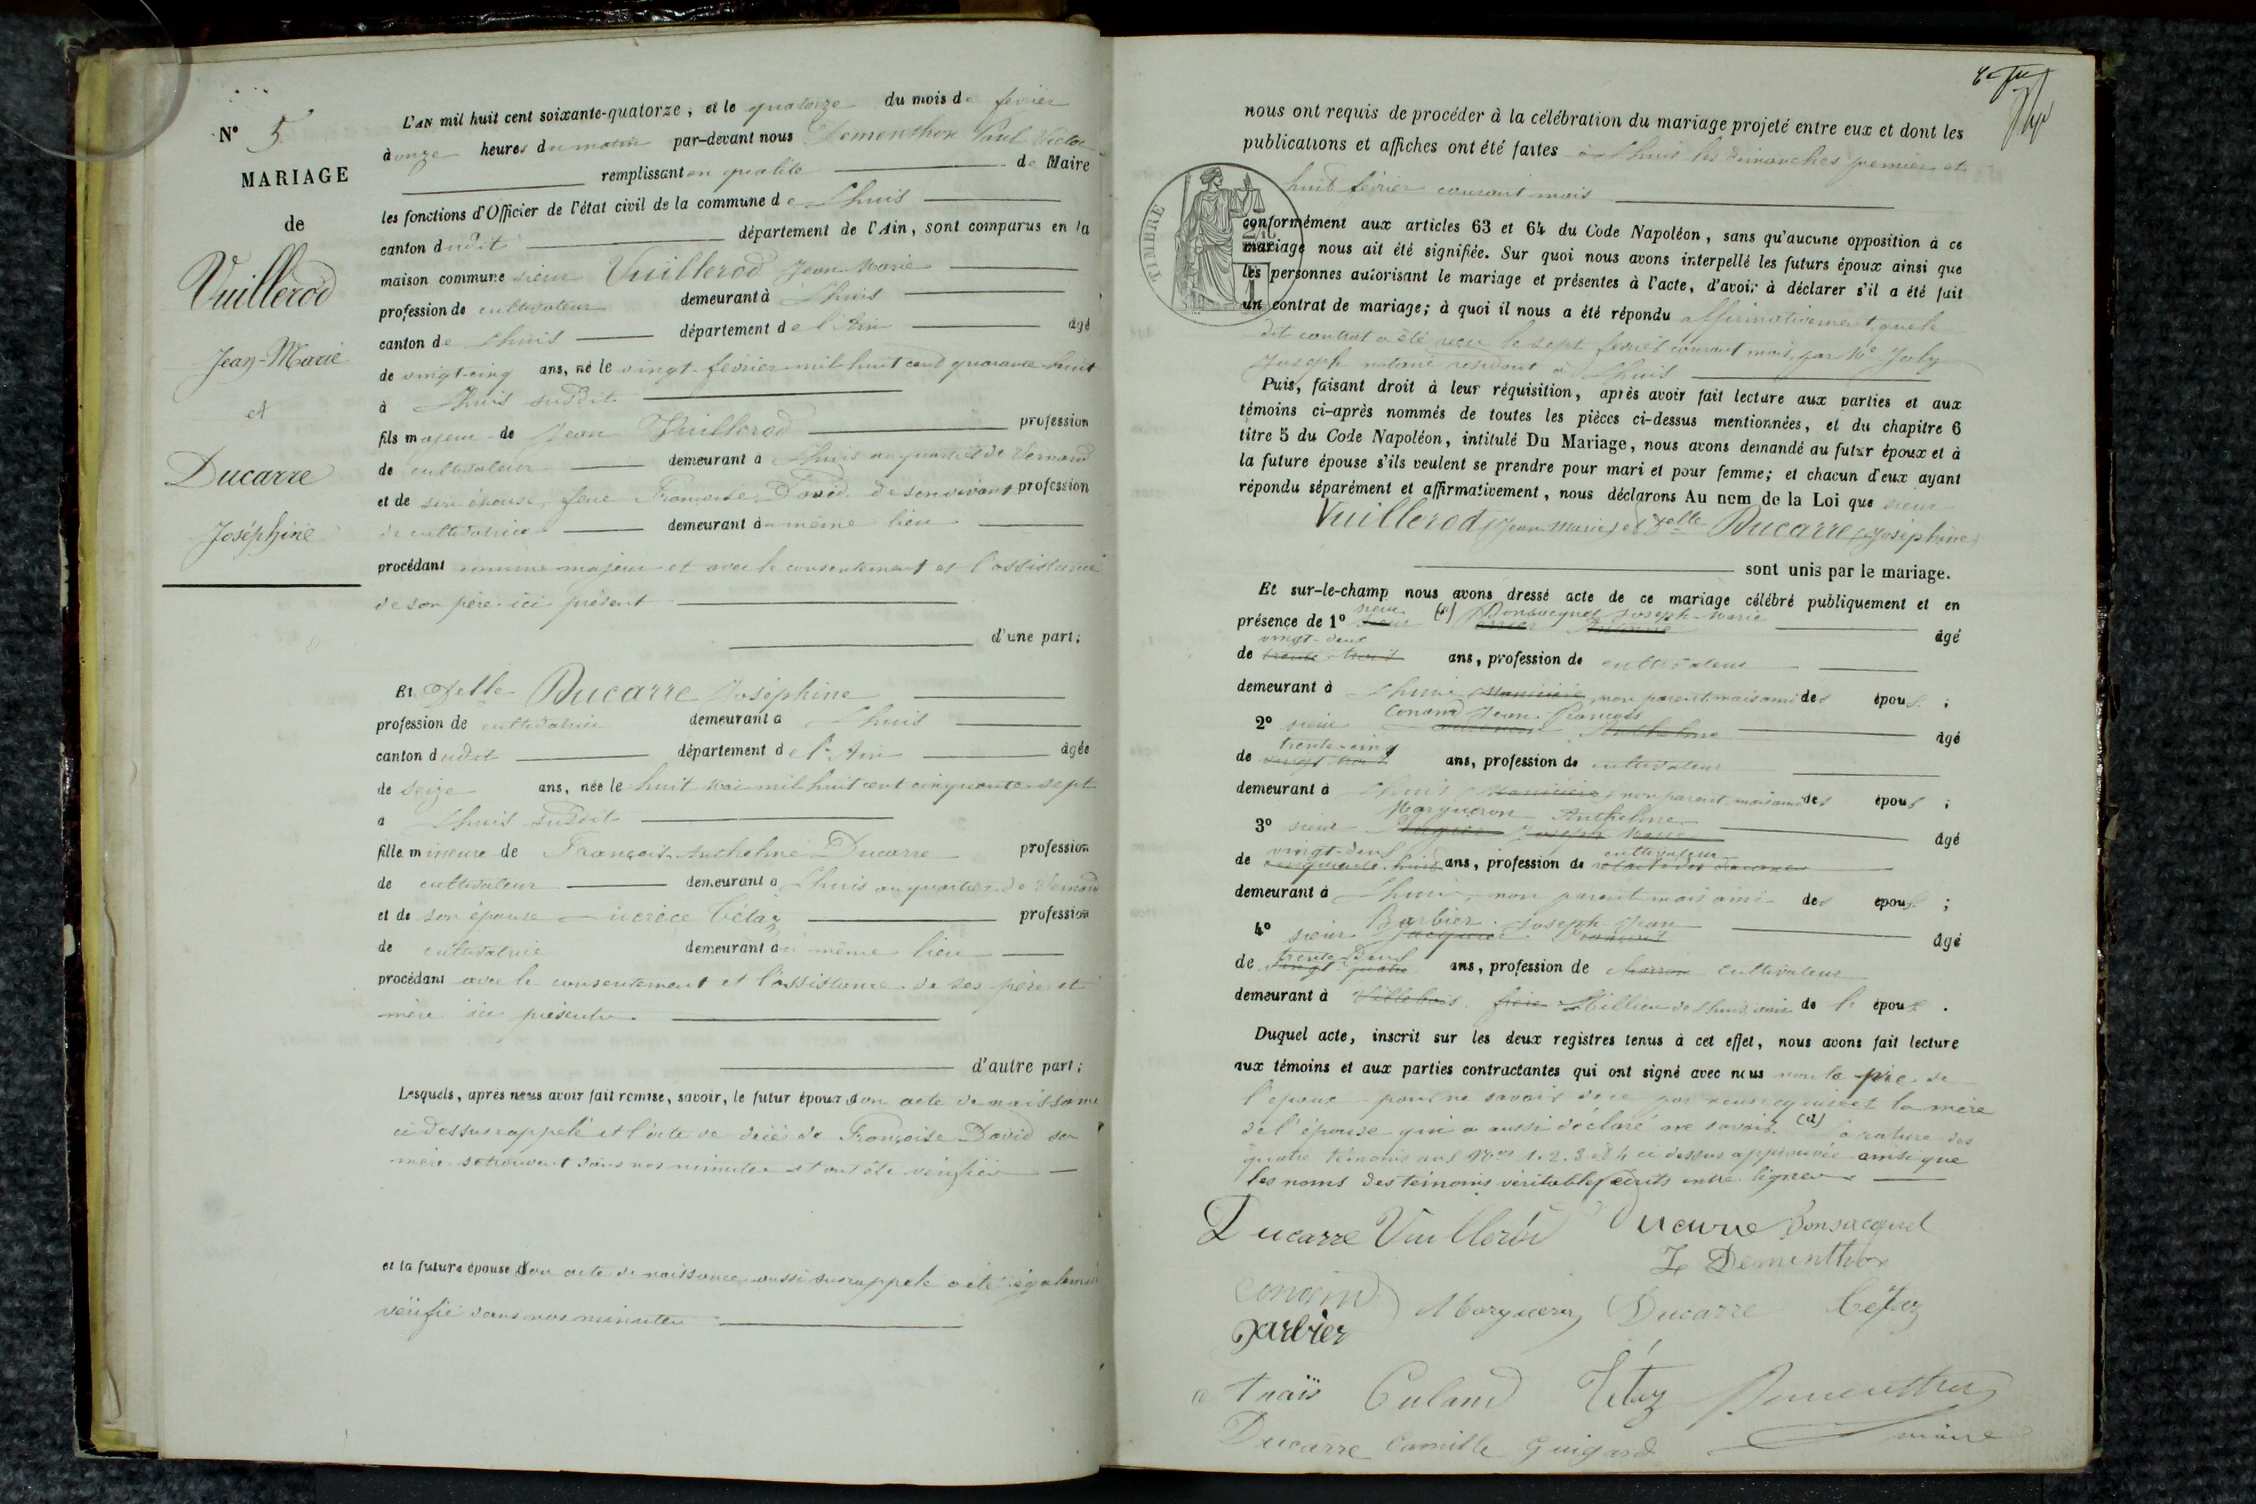 N° 5
MARIAGE
de
Vuillerod
Jean-Marie
et
Ducarre
Joséphine
L'AN mil huit cent soixante-quatorze, et le quatorze du mois de février
à onze heures du matin par-devant nous Dementhon Paul Victor
remplissant en qualité de Maire
les fonctions d'Officier de l'état civil de la commune de Lhuis
canton dudit département de l'Ain, sont comparus en la
maison commune sieur Vuillerod Jean-Marie
profession de cultivateur demeurant à Lhuis
canton de Lhuis département de l'Ain âgé
de vingt-cinq ans, né le vingt février mil huit cent quarante-huit
à Lhuis susdit
fils majeur de Jean Vuillerod profession
de cultivateur demeurant à Lhuis au quartier de
et de son épouse, feue Françoise David de son vivant profession
de cultivatrice demeurant au même lieu
procédant comme majeur et avec le consentement et l'assistance
de son père ici présent
d'une part;
Et Delle Ducarre Joséphine
profession de cultivatrice demeurant à Lhuis
canton dudit département de l'Ain âgée
de seize ans, née le huit mai mil huit cent cinquante-sept
à Lhuis susdit
fille mineure de François-Anthelme Ducarre profession
de cultivateur demeurant à Lhuis au quartier de
et de son épouse Lucrèce Tétaz profession
de cultivatrice demeurant au même lieu
procédant avec le consentement et l'assistance de ses père et
mère ici présents
d'autre part;
Lesquels, après nous avoir fait remise, savoir, le futur époux d'on acte de naissance
ci-dessus rappelé et l'acte de décès de Françoise David sa
mère se trouvent dans nos minutes et ont été vérifiés
et la future épouse d'on acte de naissance aussi susrappelé a été également
vérifié dans nos minutes
nous ont requis de procéder à la célébration du mariage projeté entre eux et dont les
publications et affiches ont été faites à Lhuis les dimanches premier et
huit février courant mois
TIMBRE
conformément aux articles 63 et 64 du Code Napoléon, sans qu'aucune opposition à ce
mariage nous ait été signifiée. Sur quoi nous avons interpellé les futurs époux ainsi que
les personnes autorisant le mariage et présentes à l'acte, d'avoir à déclarer s'il a été fait
un contrat de mariage; à quoi il nous a été répondu affirmativement que le
dit contrat a été reçu le sept février courant mois par Me Joly
Joseph notaire résidant à Lhuis
Puis, faisant droit à leur réquisition, après avoir fait lecture aux parties et aux
témoins ci-après nommés de toutes les pièces ci-dessus mentionnées, et du chapitre 6
titre 5 du Code Napoléon, intitulé Du Mariage, nous avons demandé au futur époux et à
la future épouse s'ils veulent se prendre pour mari et pour femme; et chacun d'eux ayant
répondu séparément et affirmativement, nous déclarons Au nom de la Loi que sieur
Vuillerod (Jean-Marie) et Delle Ducarre (Joséphine)
sont unis par le mariage.
Et sur-le-champ nous avons dressé acte de ce mariage célébré publiquement et en
présence de 1° sieur (a) Bonsacquet Joseph-Marie âgé
de vingt-deux ans, profession de cultivateur
demeurant à Lhuis non parent mais ami des époux;
2° sieur Conand Jean-François âgé
de trente-cinq ans, profession de cultivateur
demeurant à Lhuis, non parent mais ami des époux;
3° sieur Margueron Anthelme âgé
de vingt-deux ans, profession de cultivateur
demeurant à Lhuis, non parent mais ami des époux;
4° sieur Barbier Joseph Jean âgé
de trente-deux ans, profession de cultivateur
demeurant à Millieu de Lhuis, ami de l' époux.
Duquel acte, inscrit sur les deux registres tenus à cet effet, nous avons fait lecture
aux témoins et aux parties contractantes qui ont signé avec nous non le père de
l'époux pour ne savoir de ce par nous requis et la mère
de l'épouse qui a aussi déclaré ne savoir. (a) La rature des
quatre témoins aux Nos 1. 2. 3 et 4 ci dessus approuvée ainsi que
les noms des témoins véritables écrits entre lignes
Ducarre Vuillerod Ducarre Bonsacquet
Dementhon
Conand Margueron Ducarre Tétaz
Barbier
Culand Tétaz Dementhon
Ducarre Camille Guigard maire